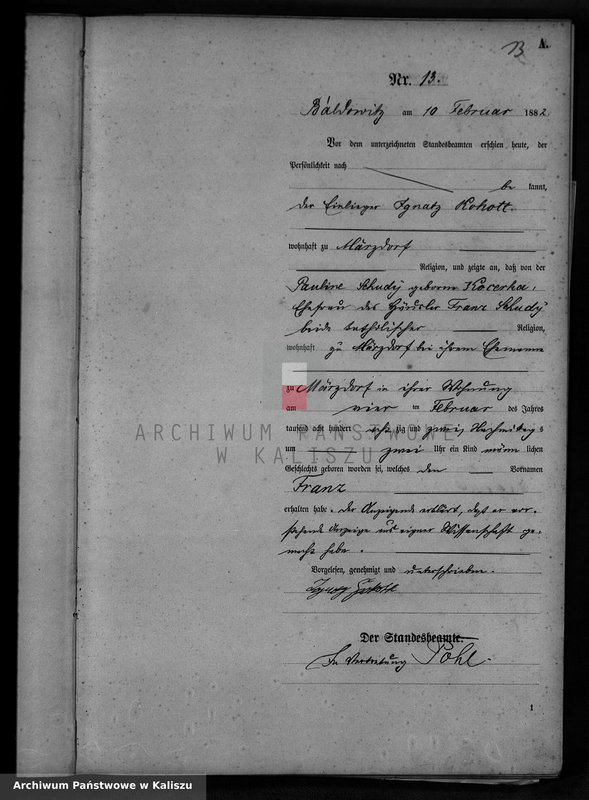 13
A.
Nr. 13.
Baldowitz am 10 Februar 1882
Vor dem unterzeichneten Standesbeamten erschien heute, der
Persönlichkeit nach
be kannt,
der Einlieger Ignatz Kokott
wohnhaft zu Märzdorf
Religion, und zeigte an, daß von der
Pauline Skudÿ geborene Kocerka,
Ehefrau des Häusler Franz Skudÿ
beide katholischer Religion,
wohnhaft zu Märzdorf bei ihrem Ehemanne
zu Märzdorf in ihrer Wohnung
am vier ten Februar des Jahres
tausend acht hundert acht zig und zwei, Nachmittags
um zwei Uhr ein Kind männ lichen
Geschlechts geboren worden sei, welches den Vornamen
Franz
erhalten habe. Der Anzeigende erklärt, daß er vor-
stehende Anzeige aus eigner Wissenschaft ge-
macht habe.
Vorgelesen, genehmigt und unterschrieben.
Ignatz
Der Standesbeamte.
In Vertretung Pohl
1
ARCHIWUM PAŃSTWOWE
W KALISZU
Archiwum Państwowe w Kaliszu